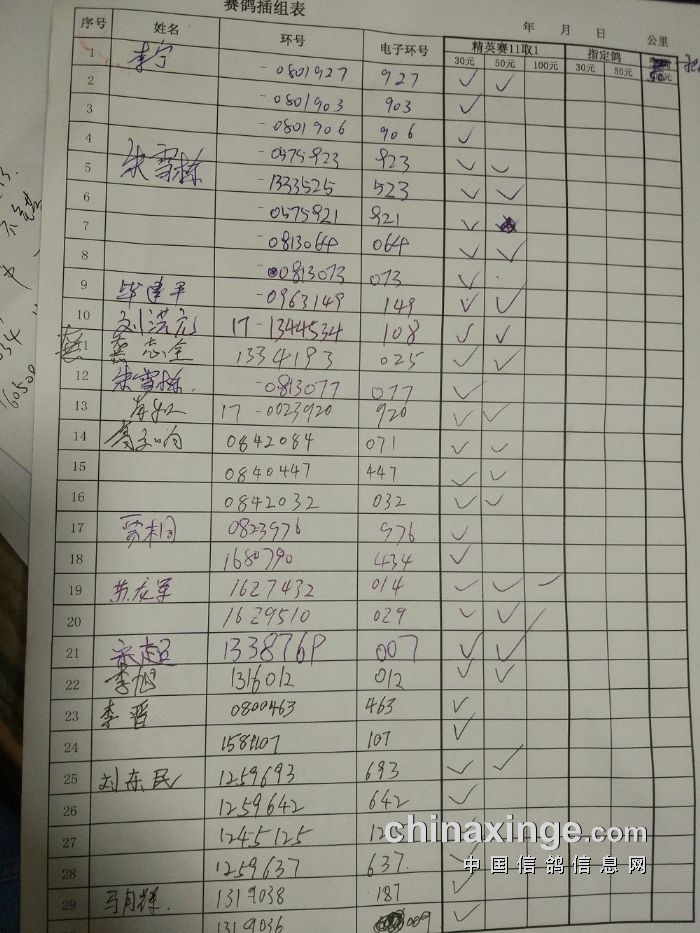 赛鸽插组表
年 月 日 公里
序号 姓名 环号 电子环号 精英赛11取1 指定鸽
30元 50元 100元 30元 50元
1 李宁 -0801927 927
2 -0801903 903
3 -0801906 906
4 朱雪栋 -0575923 923
5 -1333525 523
6 -0575921 921
7 -0813064 064
8 -0813073 073
9 毕建平 -0963149 149
10 刘洪彪 17-1344534 108
11 志全 1334193 025
12 朱雪栋 -0813077 077
13 17-0023920 920
14 0842084 071
15 0840447 447
16 0842032 032
17 贾相 0823976 976
18 1680790 434
19 苏友军 1627432 014
20 1629510 029
21 007
22 李旭 1316012 012
23 李晋 0800463 463
24 107
25 刘东民 1259693 693
26 1259642 642
27 1245125
28 1259637 637.
29 1319038 187
1319036 009
chinaxinge.com
中国信鸽信息网